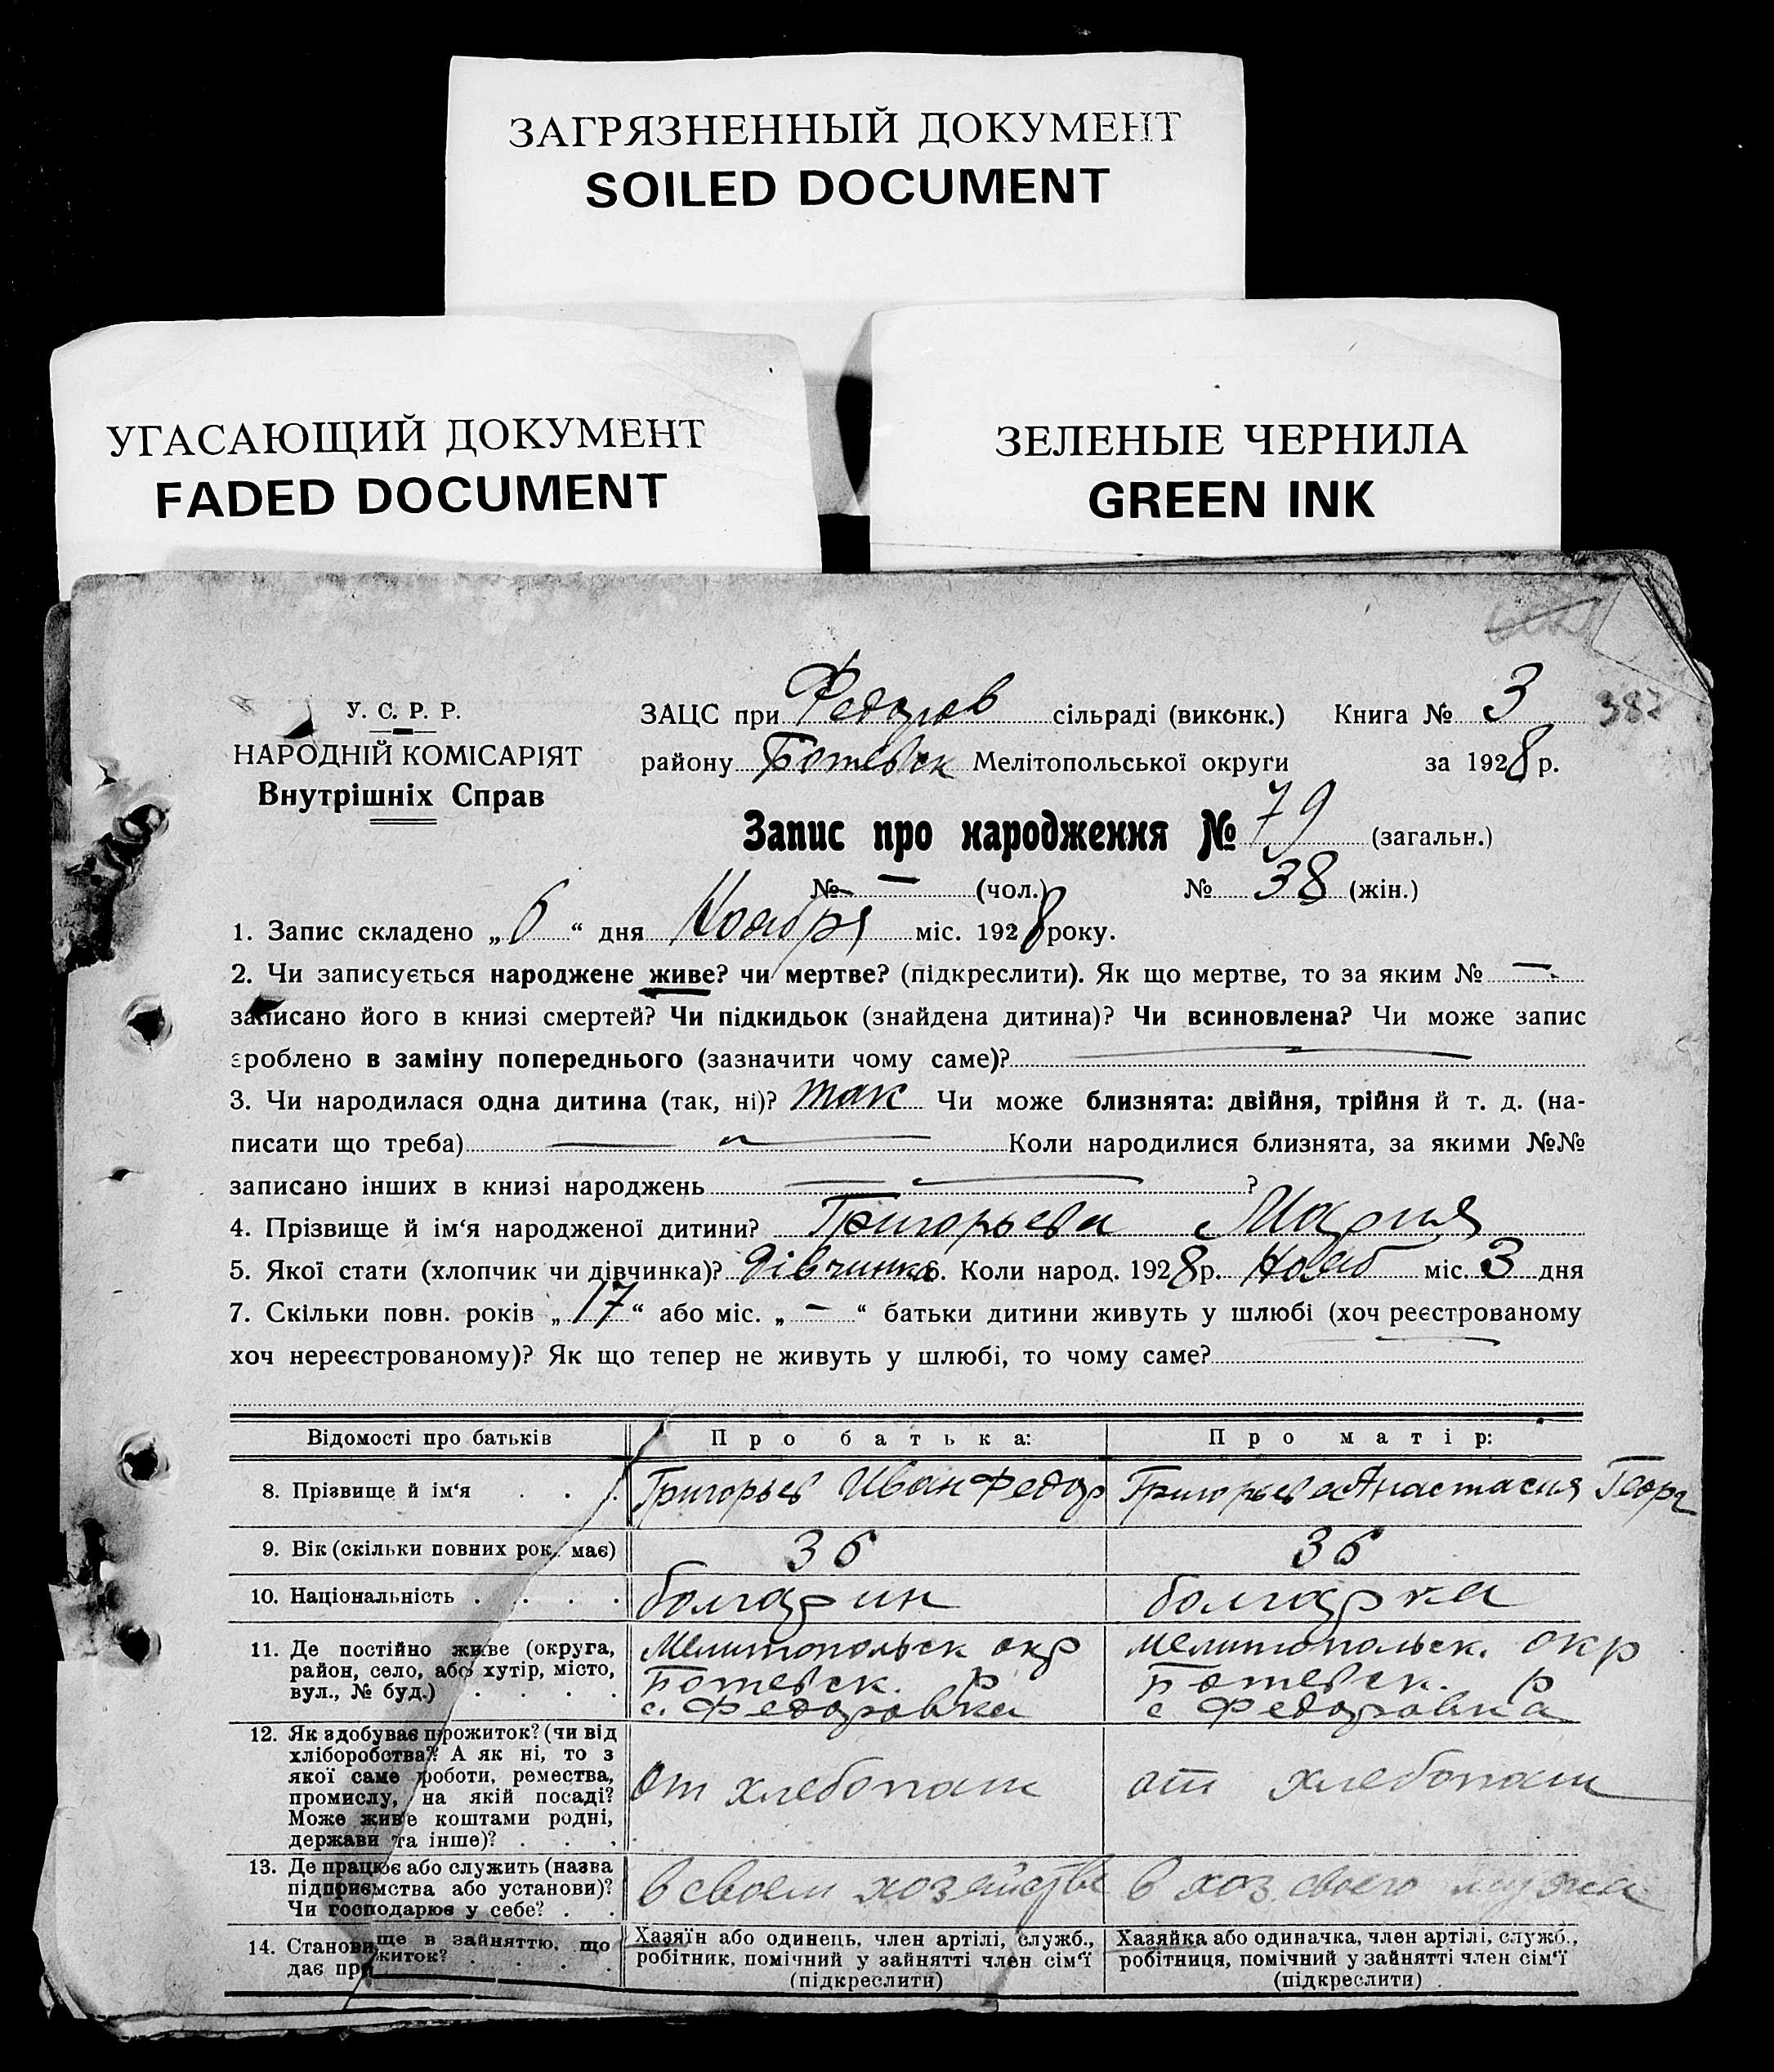 ЗАГРЯЗНЕННЫЙ ДОКУМЕНТ
SOILED DOCUMENT
УГАСАЮЩИЙ ДОКУМЕНТ
FADED DOCUMENT
ЗЕЛЕНЫЕ ЧЕРНИЛА
GREEN INK
У. С. Р. Р.
НАРОДНІЙ КОМІСАРІЯТ
Внутрішніх Справ
ЗАЦС при Федоров сільраді (виконк.) Книга № 3 387
району Ботевск Мелітопольської округи за 1928 р.
Запис про народження № 79 (загальн.)
№ — (чол.) № 38 (жін.)
1. Запис складено „6“ дня Ноября міс. 1928 року.
2. Чи записується народжене живе? чи мертве? (підкреслити). Як що мертве, то за яким № —
записано його в книзі смертей? Чи підкидьок (знайдена дитина)? Чи всиновлена? Чи може запис
зроблено в заміну попереднього (зазначити чому саме)? —
3. Чи народилася одна дитина (так, ні)? так Чи може близнята: двійня, трійня й т. д. (на-
писати що треба) — Коли народилися близнята, за якими №№
записано інших в книзі народжень — ?
4. Прізвище й ім‘я народженої дитини? Григорьева Мария
5. Якої стати (хлопчик чи дівчинка)? дівчинка 6. Коли народ. 1928 р. Нояб міс. 3 дня
7. Скільки повн. років „17“ або міс. „—“ батьки дитини живуть у шлюбі (хоч реєстрованому
хоч нереєстрованому)? Як що тепер не живуть у шлюбі, то чому саме? —
Відомості про батьків Про батька: Про матір:
8. Прізвище й ім‘я . . . Григорьев Иван Федор Григорьева Анастасия Георг
9. Вік (скільки повних рок. має) 36 36
10. Національність . . . . болгарин болгарка
11. Де постійно живе (округа,
район, село, або хутір, місто,
вул., № буд.) . . . .
Мелитопольск окр
Ботевск. р
с. Федоровка
Мелитопольск. окр
Ботевск. р
с Федоровка
12. Як здобуває прожиток? (чи від
хліборобства? А як ні, то з
якої саме роботи, ремества,
промислу, на якій посаді?
Може живе коштами родні,
держави та інше)? . . .
От хлебопаш
от хлебопаш
13. Де працює або служить (назва
підприємства або установи)?
Чи господарює у себе? . .
В своем хозяйстве
В хоз. своего мужа
14. Станови ще в зайняттю, що
дає пр житок? . . . .
Хазяїн або одинець, член артілі, служб.,
робітник, помічний у зайнятті член сім‘ї
(підкреслити)
Хазяйка або одиначка, член артілі, служб.,
робітниця, помічний у зайнятті член сім‘ї
(підкреслити)